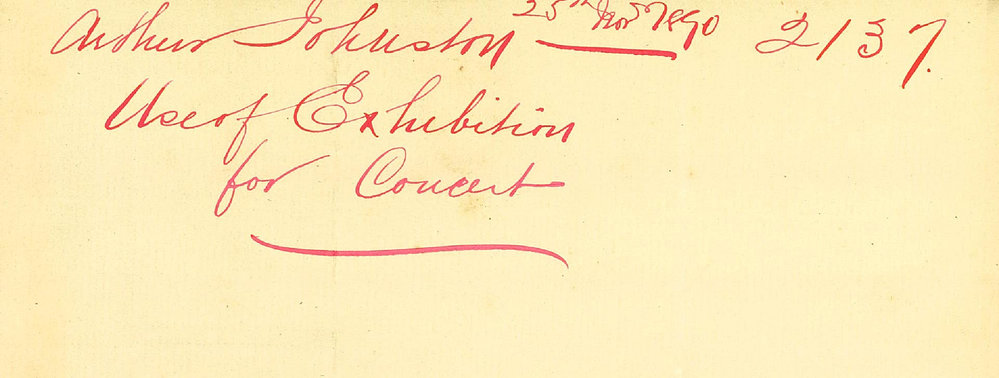 Arthur Johnston 25th Nov 1890 2137.
Use of Exhibition
for Concert